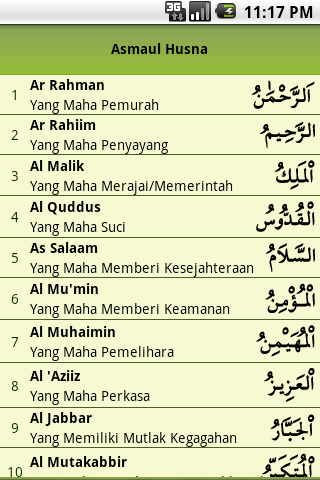 3G
11:17 PM
Asmaul Husna
1
Ar Rahman
اَلرَّحْمٰنُ
Yang Maha Pemurah
2
Ar Rahiim
الرَّحِيمُ
Yang Maha Penyayang
3
Al Malik
اْلمَلِكُ
Yang Maha Merajai/Memerintah
4
Al Quddus
اْلقُدُّوْسُ
Yang Maha Suci
5
As Salaam
السَّلاَمُ
Yang Maha Memberi Kesejahteraan
6
Al Mu'min
اْلمُؤْمِنُ
Yang Maha Memberi Keamanan
7
Al Muhaimin
اْلمُهَيْمِنُ
Yang Maha Pemelihara
8
Al 'Aziiz
اْلعَزِيزُ
Yang Maha Perkasa
9
Al Jabbar
اْلجَبَّارُ
Yang Memiliki Mutlak Kegagahan
10
Al Mutakabbir